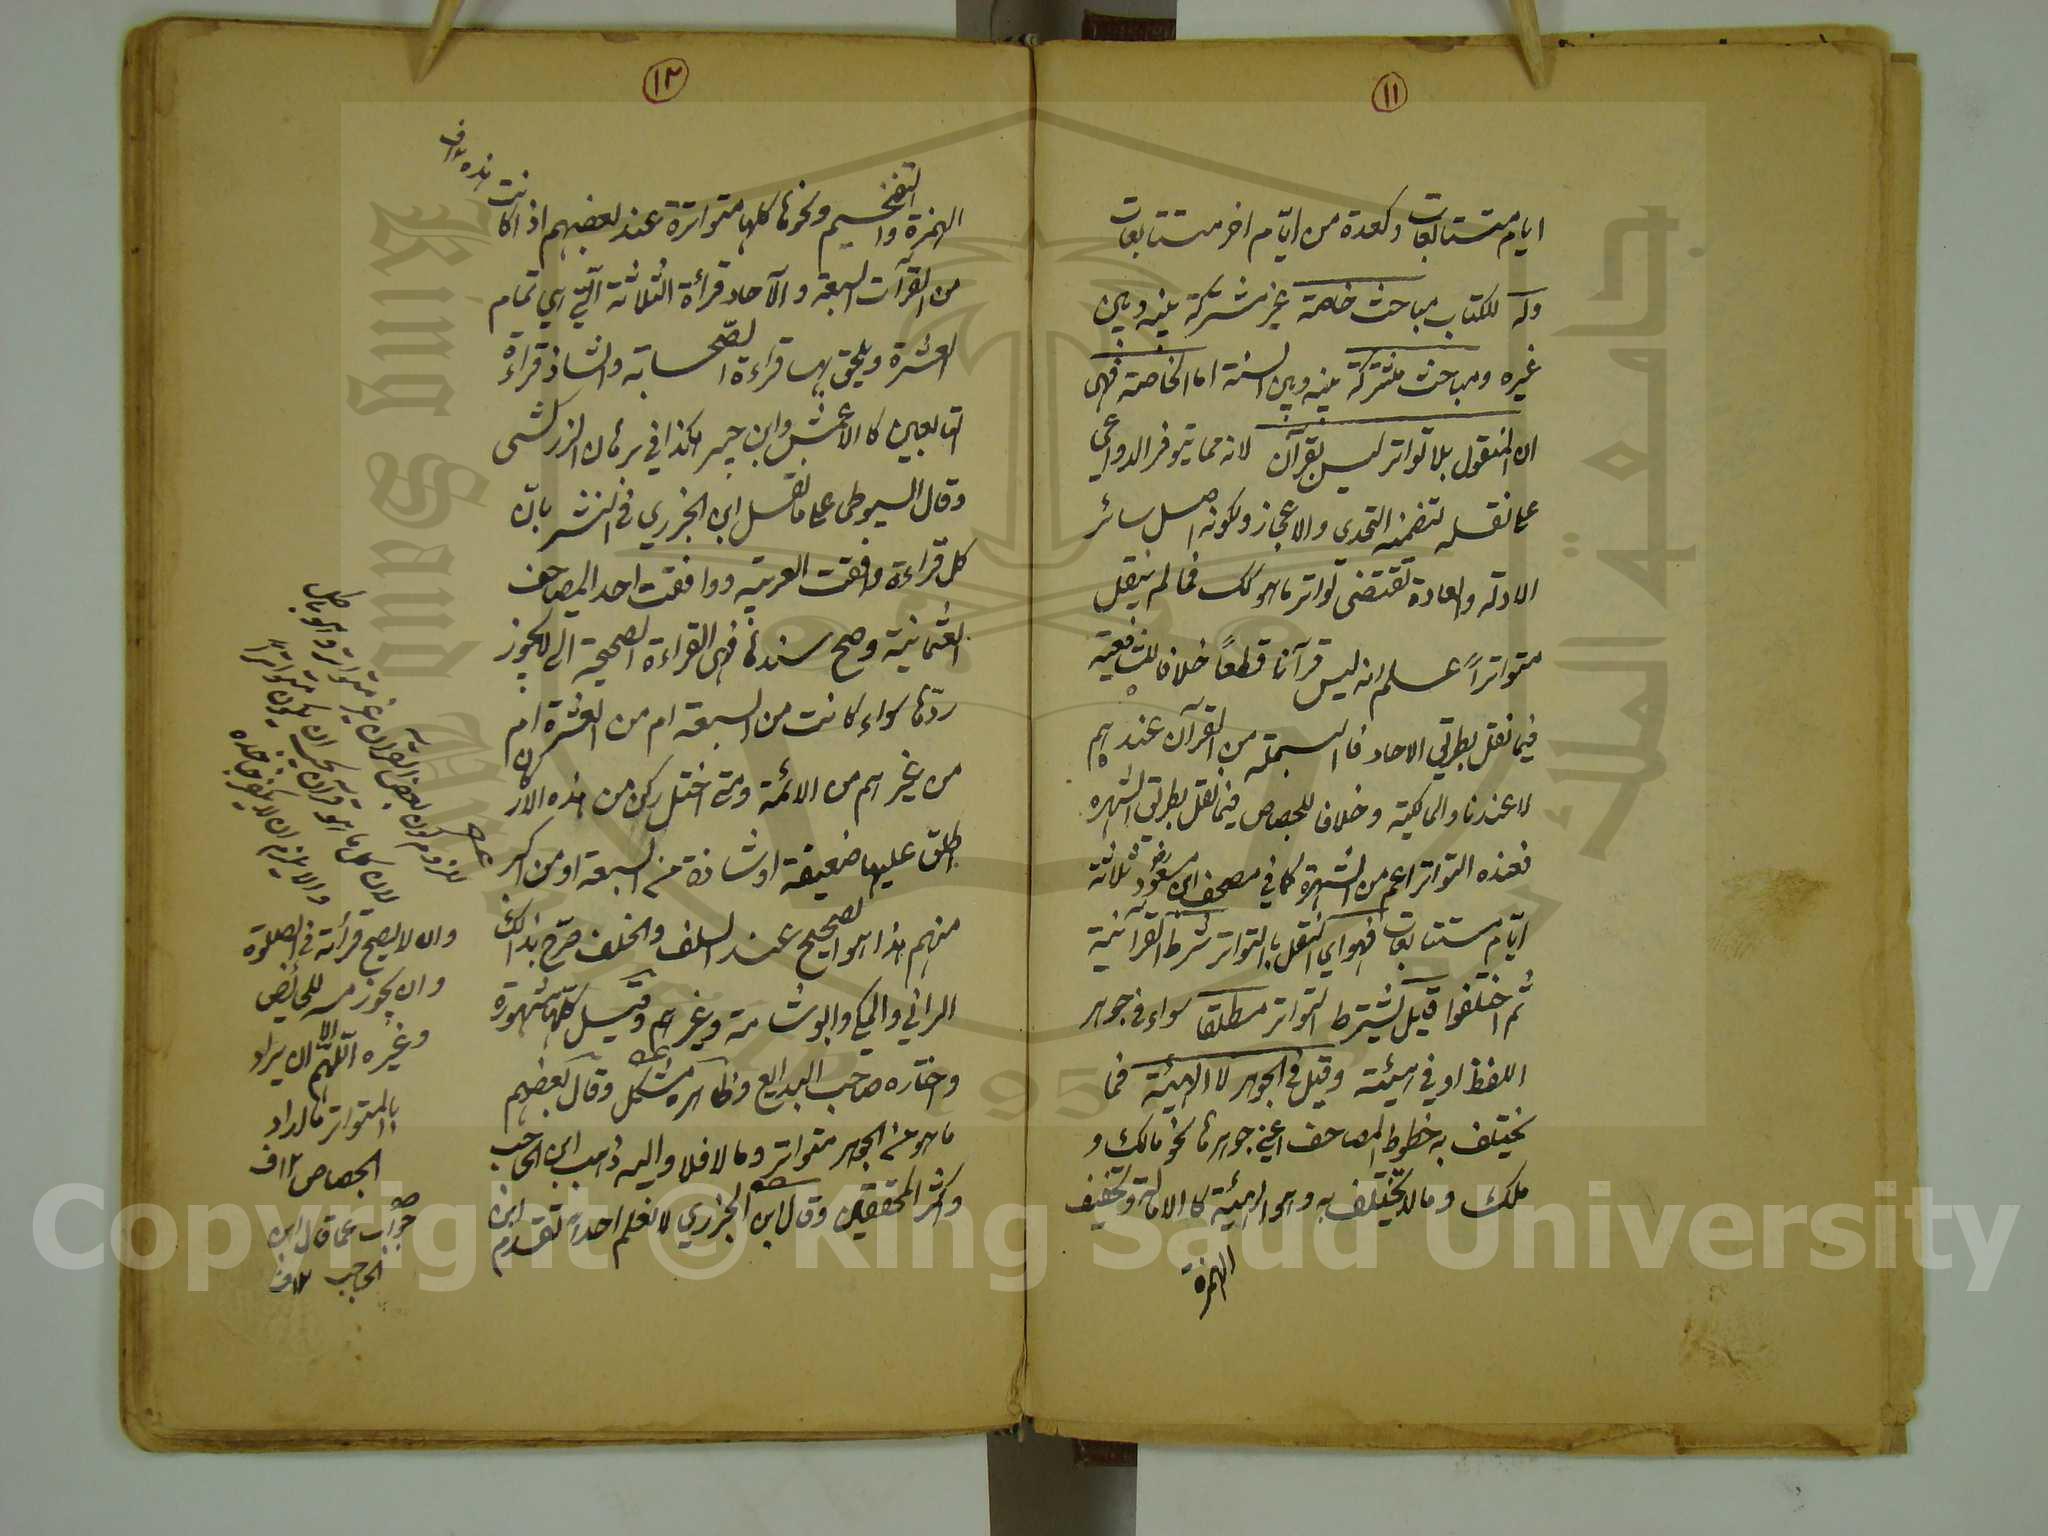 ١١
ايام متتابعات وكعدة من ايّام اخر متتابعات
وله للكتاب مباحث خاصة غير مشتركة بينه وبين
غيره ومباحث مشتركة بينه وبين السنة اما الخاصة فهى
ان المنقول بلا تواتر ليس بقرآن لانه مما يتوفر الدواعى
على نقله لتضمنه التحدي والاعجاز ولكونه اصل سائر
الادلة والعادة تقتضى تواتر ما هو كك فما لم ينقل
متواتراً علم انه ليس قرآنا قطعاً خلافا للشافعية
فيما نقل بطريق الاحاد فالبسملة من القرآن عندهم
لا عندنا والمالكية وخلافا للجصاص فيما نقل بطريق الشهرة
فعنده التواتر اعم من الشهرة كما في مصحف ابن مسعود رض ثلاثة
ايّام متتابعات فهو اي النقل بالتواتر شرط القرآنية
ثم اختلفوا قيل يشترط التواتر مطلقا سواء في جوهر
اللفظ او في هيئته وقيل في الجوهر لا الهيئة فما
يختلف به خطوط المصاحف اعني جوهرها نحو مالك و
ملك وما لا يختلف به وهو الهيئة كالامالة وتخفيف
الهمزة
١٢
الهمزة والتفخيم ونحوها كلها متواترة عند بعضهم اذا كانت
من القرآت السبعة والآحاد قرأة الثلاثة الّتي هي تمام
العشرة ويلحق بها قراءة الصّحابة والشاذ قراءة
التابعين كالاعمش وابن جبير هكذا في برهان الزركشى
وقال السيوطى على ما نقل ابن الجزري في النشر بانّ
كل قراءة وافقت العربية ووافقت احد المصاحف
العثمانية وصح سندها فهى القراءة الصحيحة التي لا يجوز
ردّها سواء كانت من السبعة ام من العشرة ام
من غيرهم من الائمة ومتى اختل ركن من هذه الاركان
اطلق عليها ضعيفة او شاذة من السبعة او من اكبر
منهم هذا هو الصحيح عند السلف والخلف صرّح بذالك
الداني والمكي وابو شامة وغيرهم وقيل كلّها مشهورة
واختاره صاحب البدايع وظاهره مشكل وقال بعضهم
ما هو من الجوهر متواتر وما لا فلا واليه ذهب ابن الحاجب
واكثر المحققين وقال ابن الجزري لا نعلم احداً تقدم ابن
هذه ١٢ف
للزوم كون بعض القرآن غير متواتر وهو باطل
لان كل ما هو قرآن يجب ان يكون متواتراً
والا يلزم ان لا يكفر جاحده
وان لا يصح قرائته في الصلوة
وان يجوز مسه للحائض
وغيره اللّهم الا ان يراد
بالمتواتر ما اراد
الجصاص ١٢ف
جواب عما قال ابن
الحاجب ١٢ف
Copyright © King Saud University
جامعة الملك سعود
King Saud University
1957